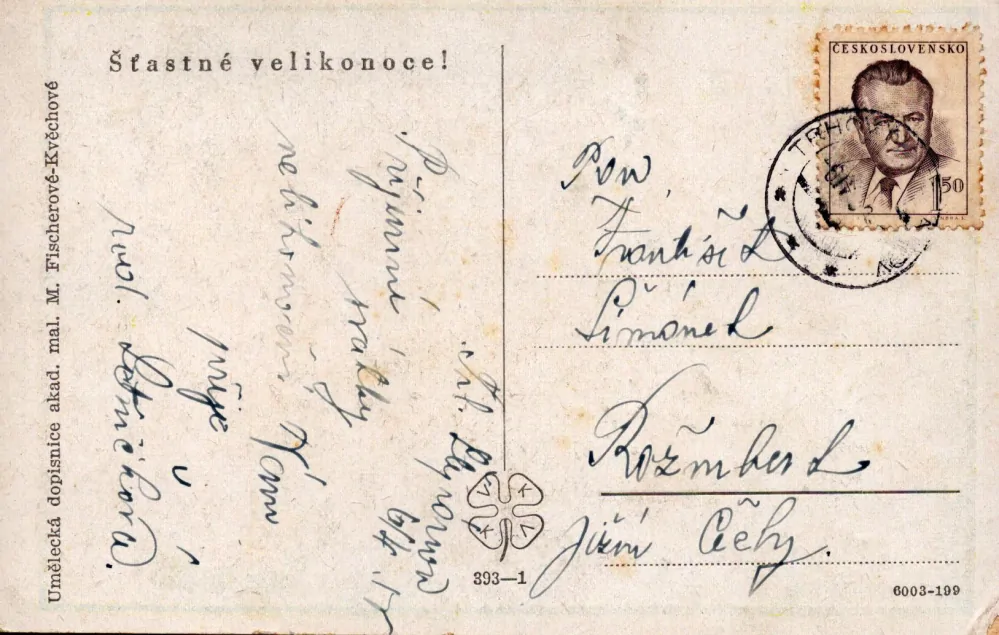 Šťastné velikonoce!
Umělecká dopisnice akad. mal. M. Fischerové-Kvěchové
Příjemné
svátky
Vám
přeje
rod.
393—1
V K
K V
ČESKOSLOVENSKO
150
TRHOV
Pan
František
Šimánek
Rožmberk
Jižní Čechy.
6003-199